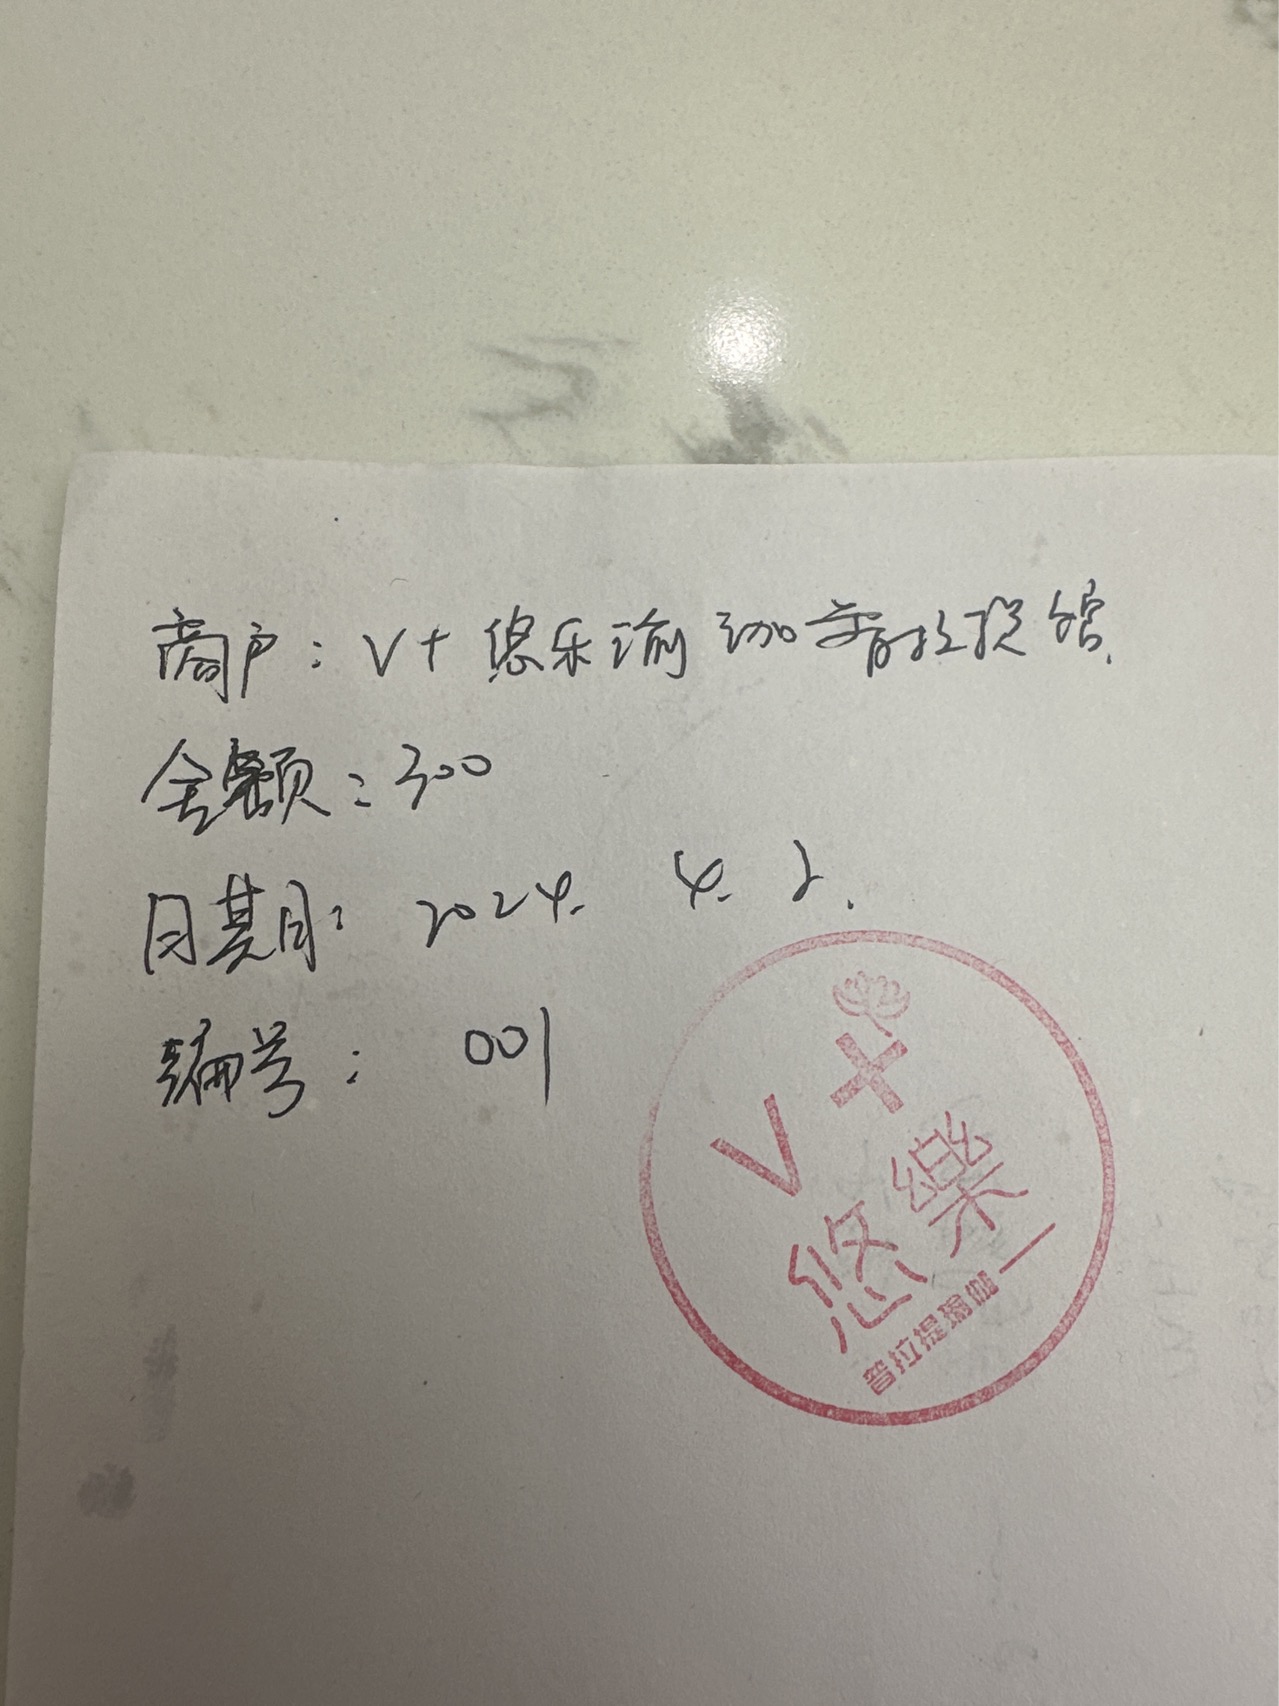 商户：V+悠乐瑜珈普拉提馆.
金额：300
日期：2024. 4. 2.
编号： 001
V+
悠樂
普拉提瑜伽